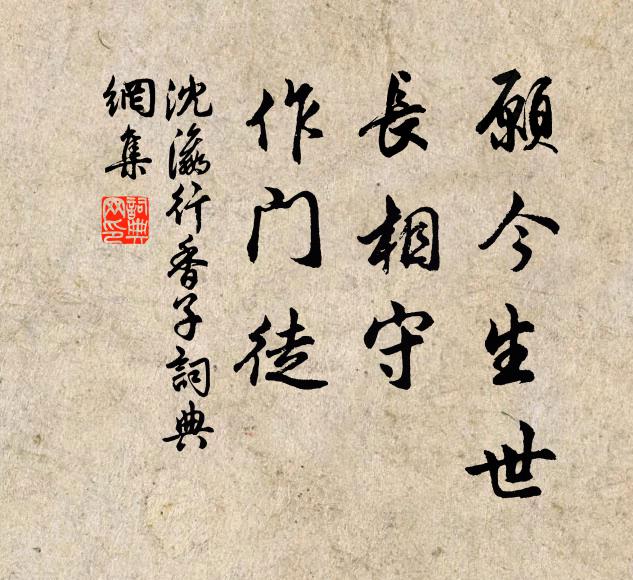 願今生世
長相守
作門徒
沈瀛行香子詞典
網集
詞典
网印